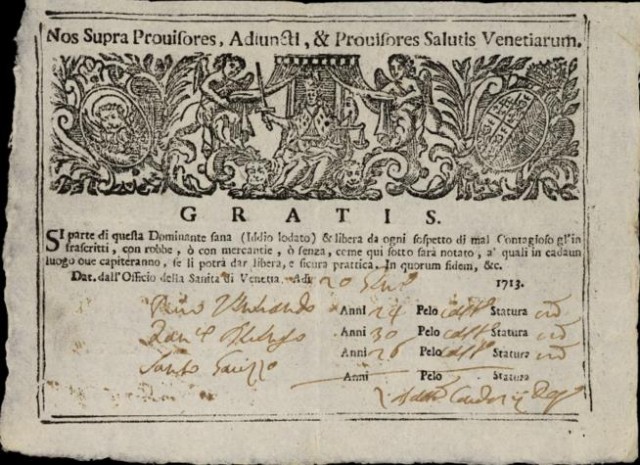 Nos Supra Prouisores, Adiuncti, & Prouisores Salutis Venetiarum.
GRATIS.
SI parte di questa Dominante sana (Iddio lodato) & libera da ogni sospetto di mal Contagioso gl'in
frascritti, con robbe, ò con mercantie, ò senza, come qui sotto sarà notato, a' quali in cadaun
luogo oue capiteranno, se li potrà dar libera, e sicura prattica. In quorum fidem, &c.
Dat. dall'Officio della Sanità di Venetia. Adi 20 1713.
Anni 24 Pelo Statura
Anni 30 Pelo Statura
Santo Anni 26 Pelo Statura
Anni Pelo Statura